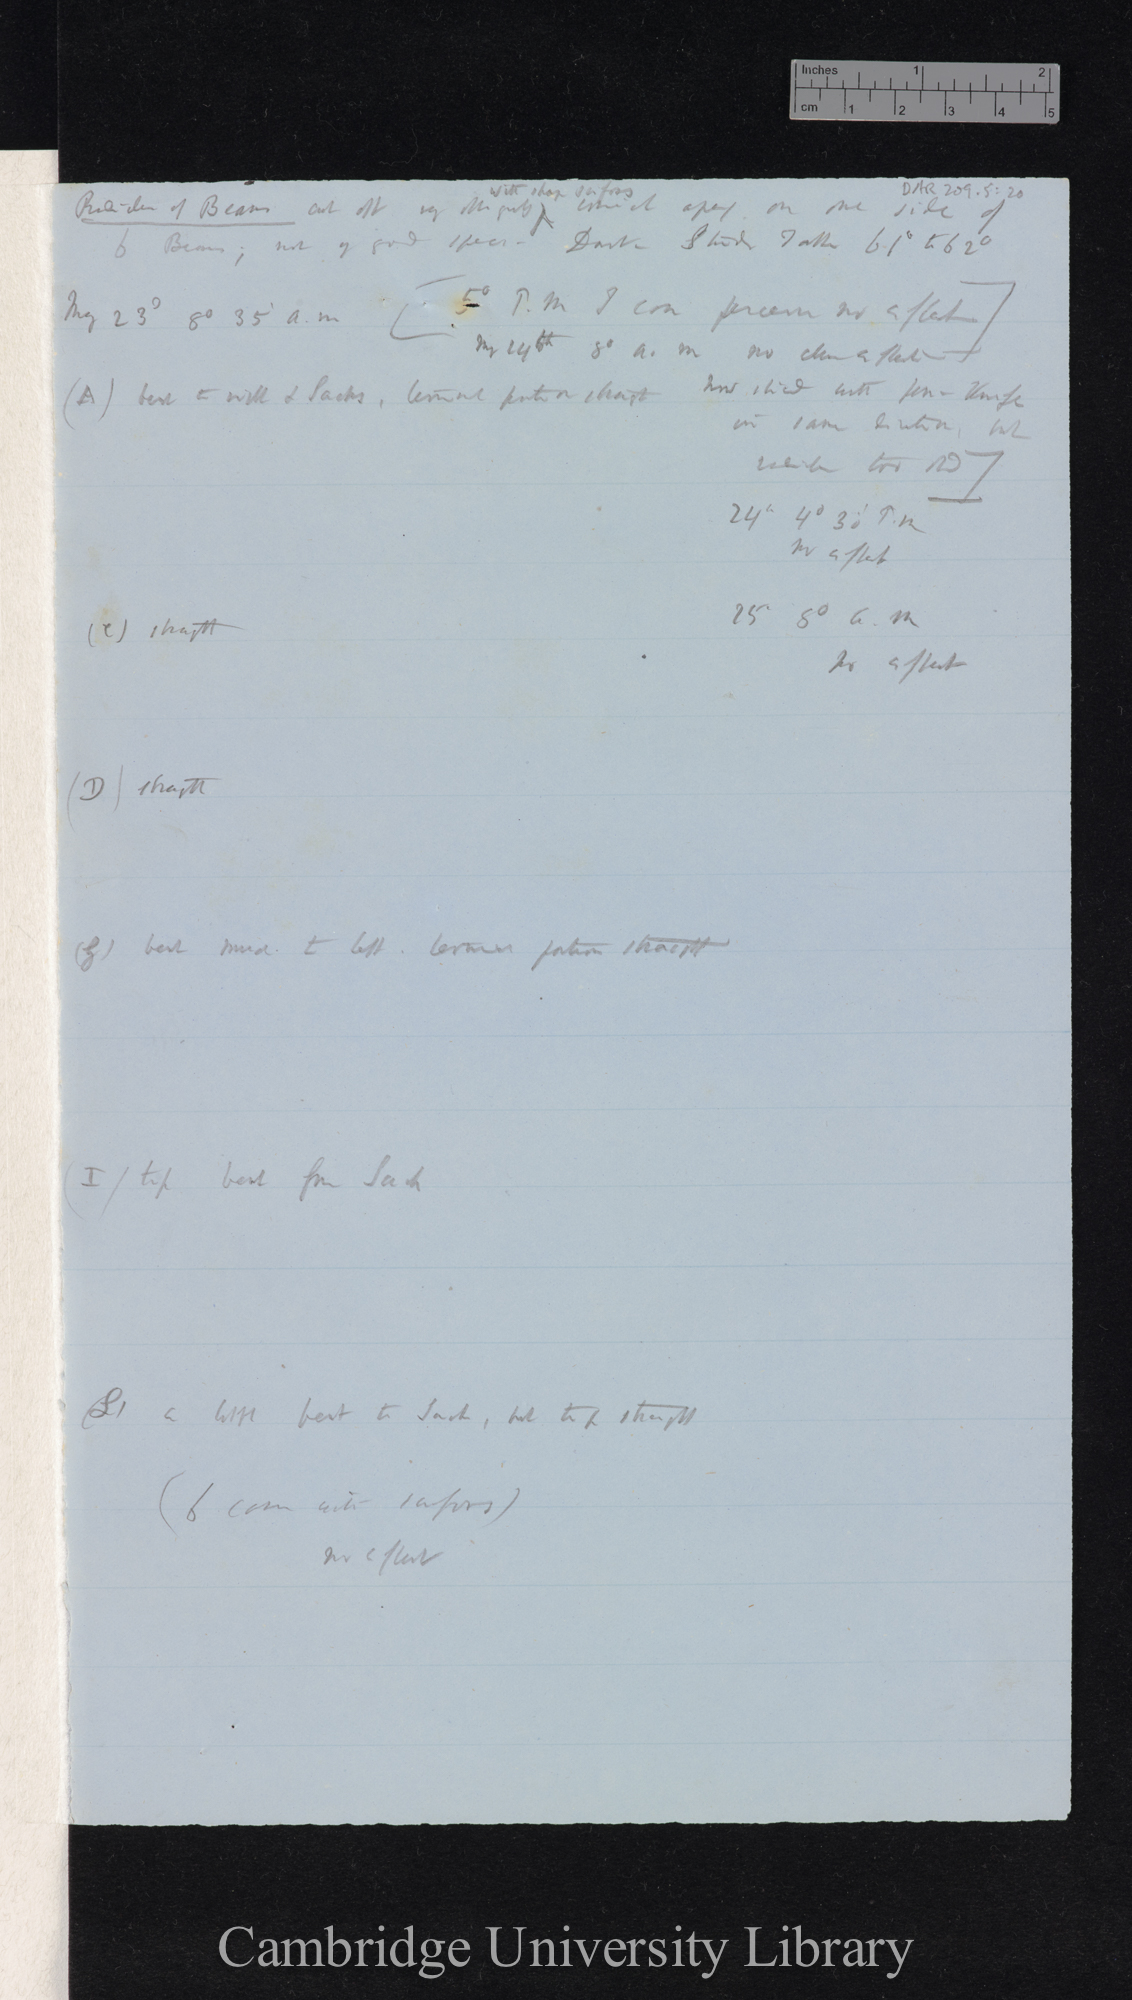 Inches 1 2
cm 1 2 3 4 5
DAR 209.5:20
with sharp scissors
Radicles of Beans cut off very obliquely conical apex on one side of
6 Beans; not of good Dark Study 61° to 62°
May 23° 8° 35' a.m
[5° P.m I can perceive no effect]
May 24th 8° a.m no clear effect
(A) bent to right & Sachs, terminal portion straight
Now sliced with pen-knife
in same direction, but
radicles too old]
24° 4° 30' P.m
no effect
25° 8° a.m
No effect
(C) straight
(D) straight
(G) bent much to left. terminal portion straight
(I) tip bent from Sachs
a little bent to Sachs, but tip straight
(6 cases with scissors)
no effect
Cambridge University Library